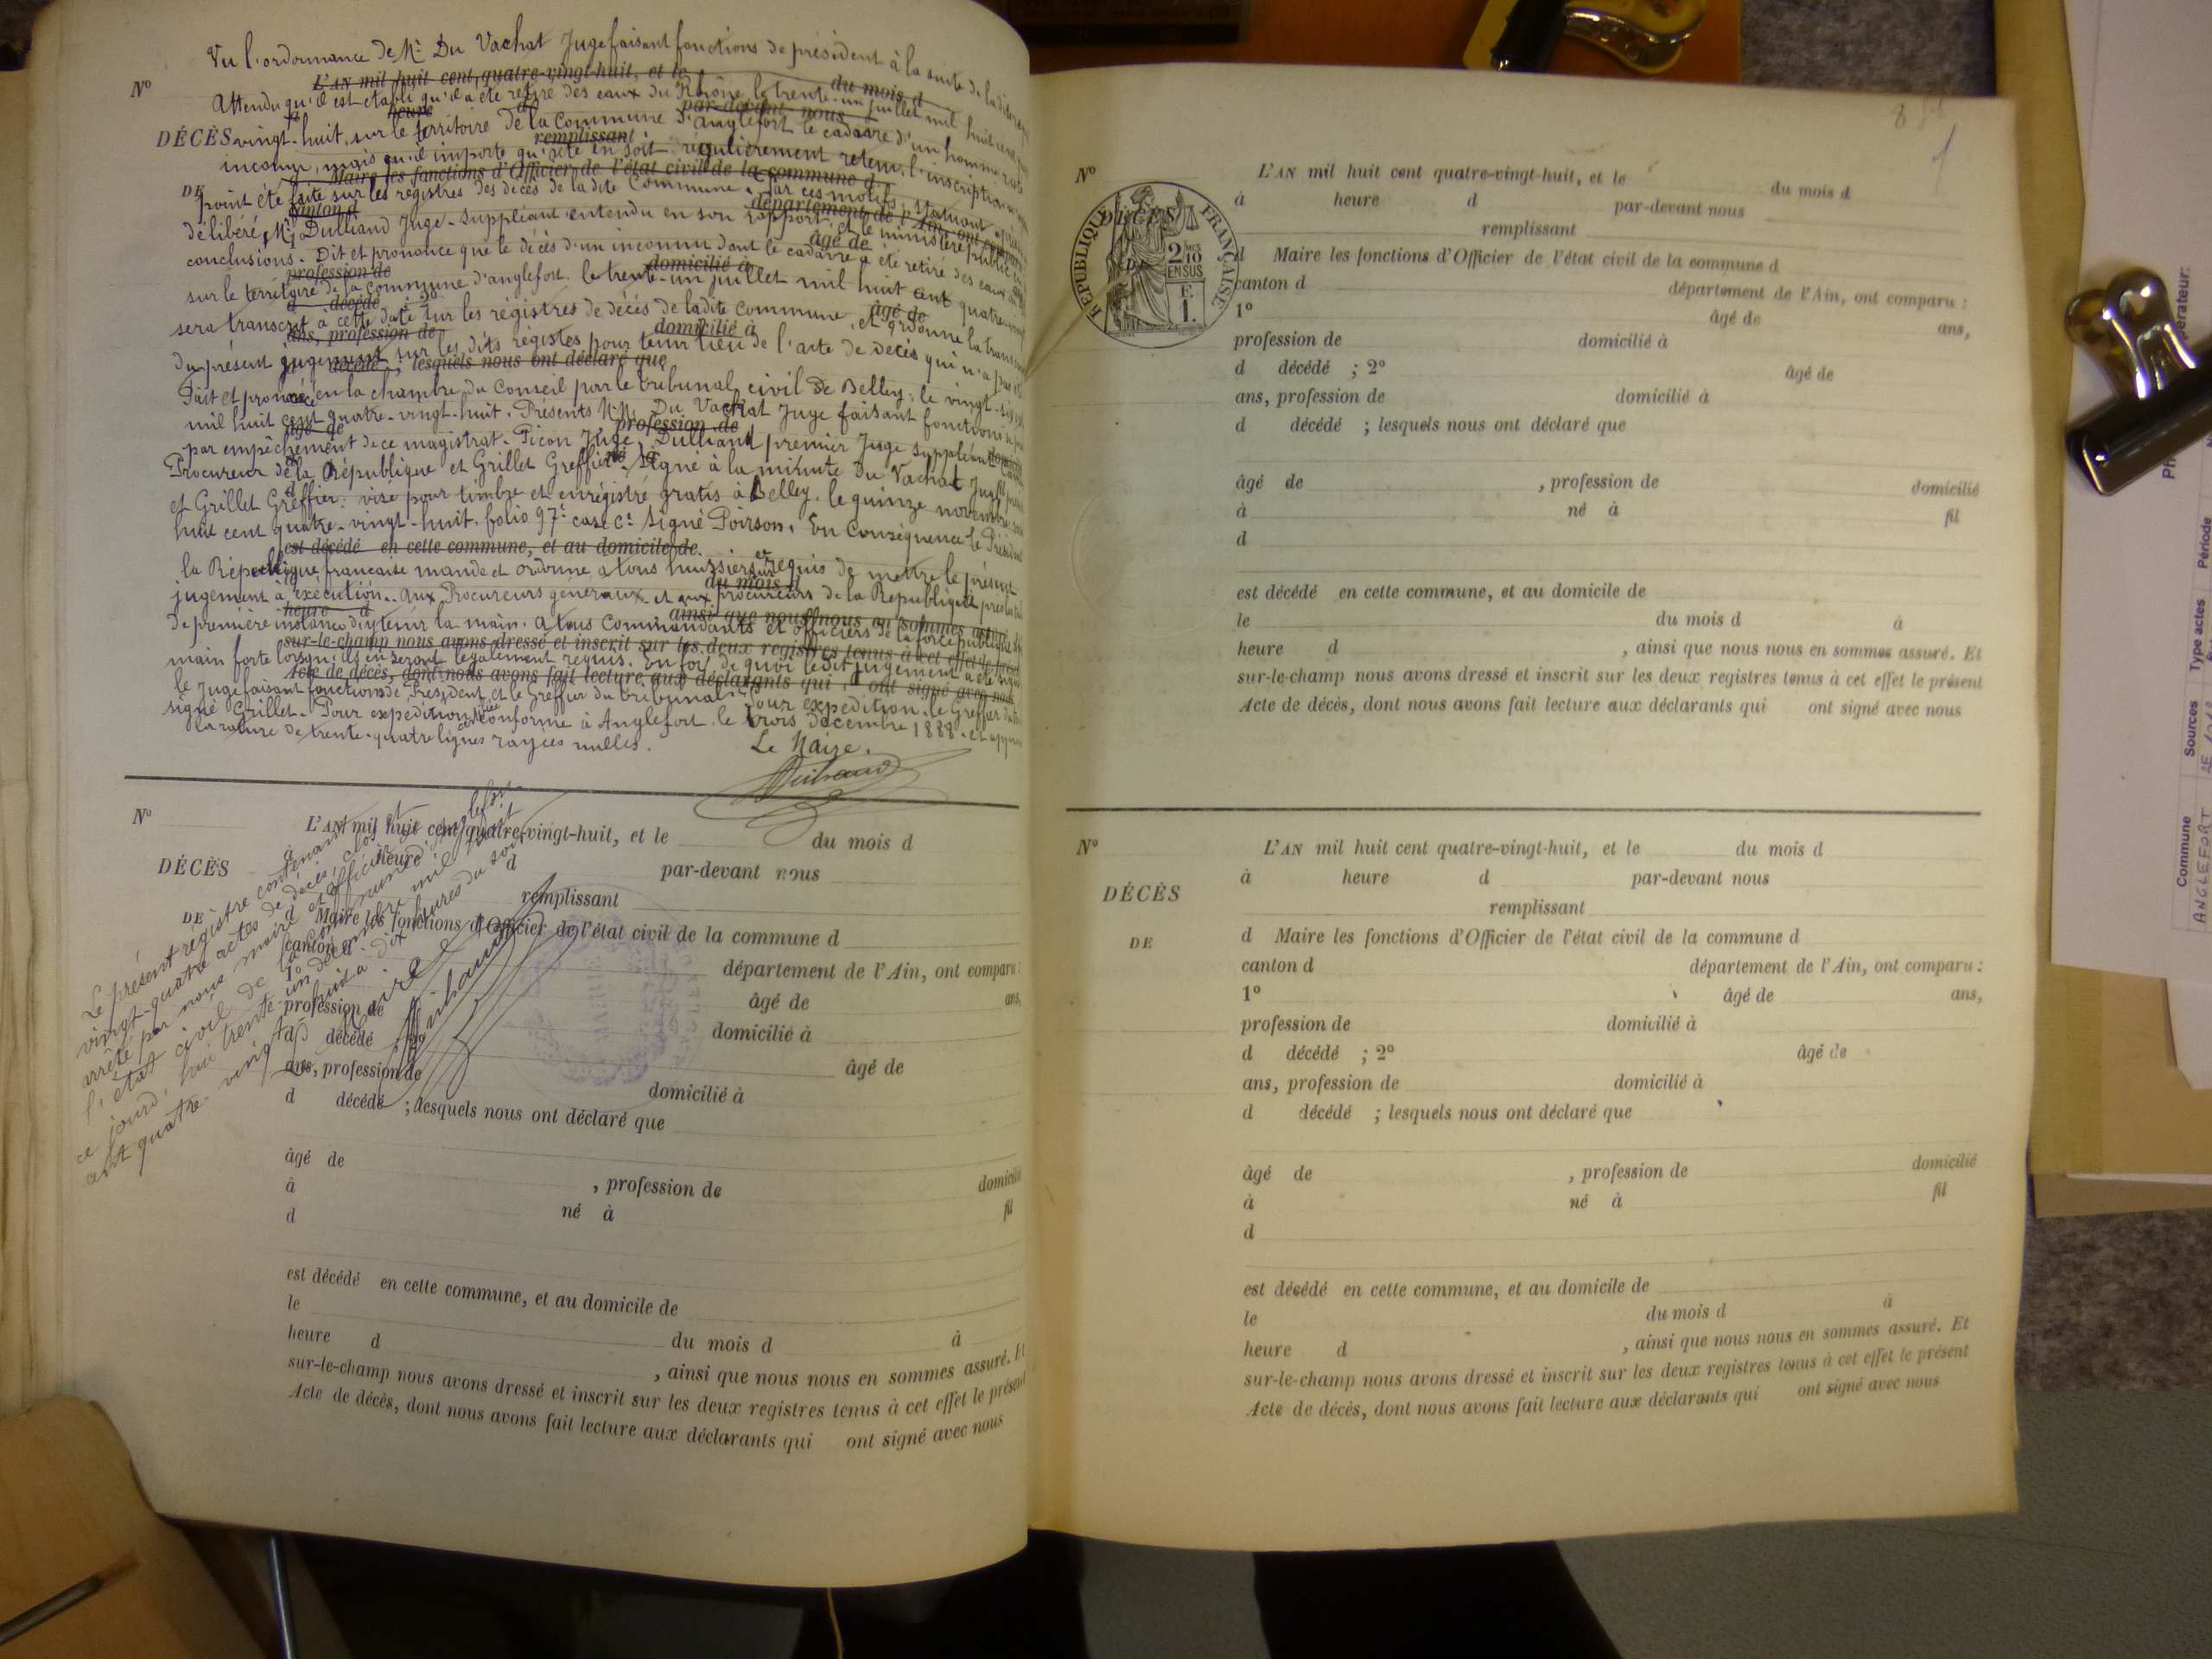 Vu l'ordonnance de Mr Du Vachat Juge faisant fonctions de président à la suite de ladite
Nº
L'AN mil huit cent quatre-vingt-huit, et le du mois d
Attendu qu'il est établi qu'il a été retiré des eaux du Rhône le trente-un juillet mil huit cent
à heure d par-devant nous
DÉCÈS vingt-huit, sur le territoire de la Commune d'anglefort le cadavre d'un homme
remplissant
inconnu, mais qu'il importe qu'acte en soit régulièrement retenu, l'inscription
Maire les fonctions d'Officier de l'état civil de la commune d
DE point été faite sur les registres des décès de ladite Commune. Par ces motifs, statuant
canton d département de l'Ain, ont comparu
délibéré, Mr Dulliand Juge-Suppléant entendu en son rapport et le ministère public
âgé de
conclusions. Dit et prononce que le décès d'un inconnu dont le cadavre a été retiré des eaux
profession de domicilié à
sur le territoire de la commune d'anglefort le trente-un juillet mil huit cent quatre-vingt
d décédé ; 2º âgé de
sera transcrit à cette date sur les régistres de décès de ladite Commune, et ordonne la
ans, profession de domicilié à
du présent jugement sur les dits régistes pour tenir lieu de l'acte de décès qui n'a pas
d décédé ; lesquels nous ont déclaré que
Fait et prononcé en la chambre du Conseil par le tribunal civil de Belley, le vingt-
mil huit cent quatre-vingt-huit. Présents M.M. Du Vachat Juge faisant fonctions
âgé de profession de
par empêchement de ce magistrat. Picon Juge, Dulliand premier Juge Suppléant
Procureur de la République et Grillet Greffier. Signé à la minute Du Vachat Juge
et Grillet Greffier. visé pour timbre et enrégistré gratis à Belley, le quinze novembre
huit cent quatre-vingt-huit. folio 97. case Ce. Signé Poirson. En Conséquence le Président
est décédé en cette commune, et au domicile de
la République francaise mande et ordonne à tous huissiers requis de mettre le présent
du mois d
jugement à exécution. aux Procureurs généraux et aux procureurs de la République près
heure d ainsi que nous nous en sommes assuré
de première instance d'y tenir la main. à tous Commandants et officiers de la force publique
sur-le-champ nous avons dressé et inscrit sur les deux registres tenus à cet effet le présent
main forte lorsqu'ils en seront légalement requis. En foi de quoi ledit jugement a été signé
Acte de décès, dont nous avons fait lecture aux déclarants qui ont signé avec nous
le Juge faisant fonctions de Président et le Greffier du tribunal. Pour expédition, le Greffier
signé Grillet. Pour expédition conforme à Anglefort le trois décembre 1888.
la rature de trente-quatre lignes rayées nulles.
Le Maire.
Nº
L'AN mil huit cent quatre-vingt-huit, et le du mois d
à heure d par-devant nous
DÉCÈS
remplissant
DE
d Maire les fonctions d'Officier de l'état civil de la commune d
canton d département de l'Ain, ont comparu :
1º âgé de ans,
profession de domicilié à
d décédé ; 2º âgé de
ans, profession de domicilié à
d décédé ; lesquels nous ont déclaré que
âgé de , profession de domicilié
à né à fil
d
est décédé en cette commune, et au domicile de
le du mois d à
heure d , ainsi que nous nous en sommes assuré. Et
sur-le-champ nous avons dressé et inscrit sur les deux registres tenus à cet effet le présent
Acte de décès, dont nous avons fait lecture aux déclarants qui ont signé avec nous
Le présent régistre contenant
vingt-quatre actes de décès, clos et
arrêté par nous maire et officier de
l'état civil de la commune d'anglefort
ce jourd'hui trente-un décembre mil huit
cent quatre-vingt-huit à dix heures du soir
Le Maire
8
Nº
L'AN mil huit cent quatre-vingt-huit, et le du mois d
à heure d par-devant nous
remplissant
DÉCÈS
DE
RÉPUBLIQUE FRANÇAISE
2 MES
10
EN SUS
F.
1.
d Maire les fonctions d'Officier de l'état civil de la commune d
canton d département de l'Ain, ont comparu :
1º âgé de ans,
profession de domicilié à
d décédé ; 2º âgé de
ans, profession de domicilié à
d décédé ; lesquels nous ont déclaré que
âgé de , profession de domicilié
à né à fil
d
est décédé en cette commune, et au domicile de
le du mois d à
heure d , ainsi que nous nous en sommes assuré. Et
sur-le-champ nous avons dressé et inscrit sur les deux registres tenus à cet effet le présent
Acte de décès, dont nous avons fait lecture aux déclarants qui ont signé avec nous
Nº
L'AN mil huit cent quatre-vingt-huit, et le du mois d
à heure d par-devant nous
DÉCÈS
remplissant
DE
d Maire les fonctions d'Officier de l'état civil de la commune d
canton d département de l'Ain, ont comparu :
1º âgé de ans,
profession de domicilié à
d décédé ; 2º âgé de
ans, profession de domicilié à
d décédé ; lesquels nous ont déclaré que
âgé de , profession de domicilié
à né à fil
d
est décédé en cette commune, et au domicile de
le du mois d à
heure d , ainsi que nous nous en sommes assuré. Et
sur-le-champ nous avons dressé et inscrit sur les deux registres tenus à cet effet le présent
Acte de décès, dont nous avons fait lecture aux déclarants qui ont signé avec nous
Commune Sources Type actes Période
ANGLEFORT